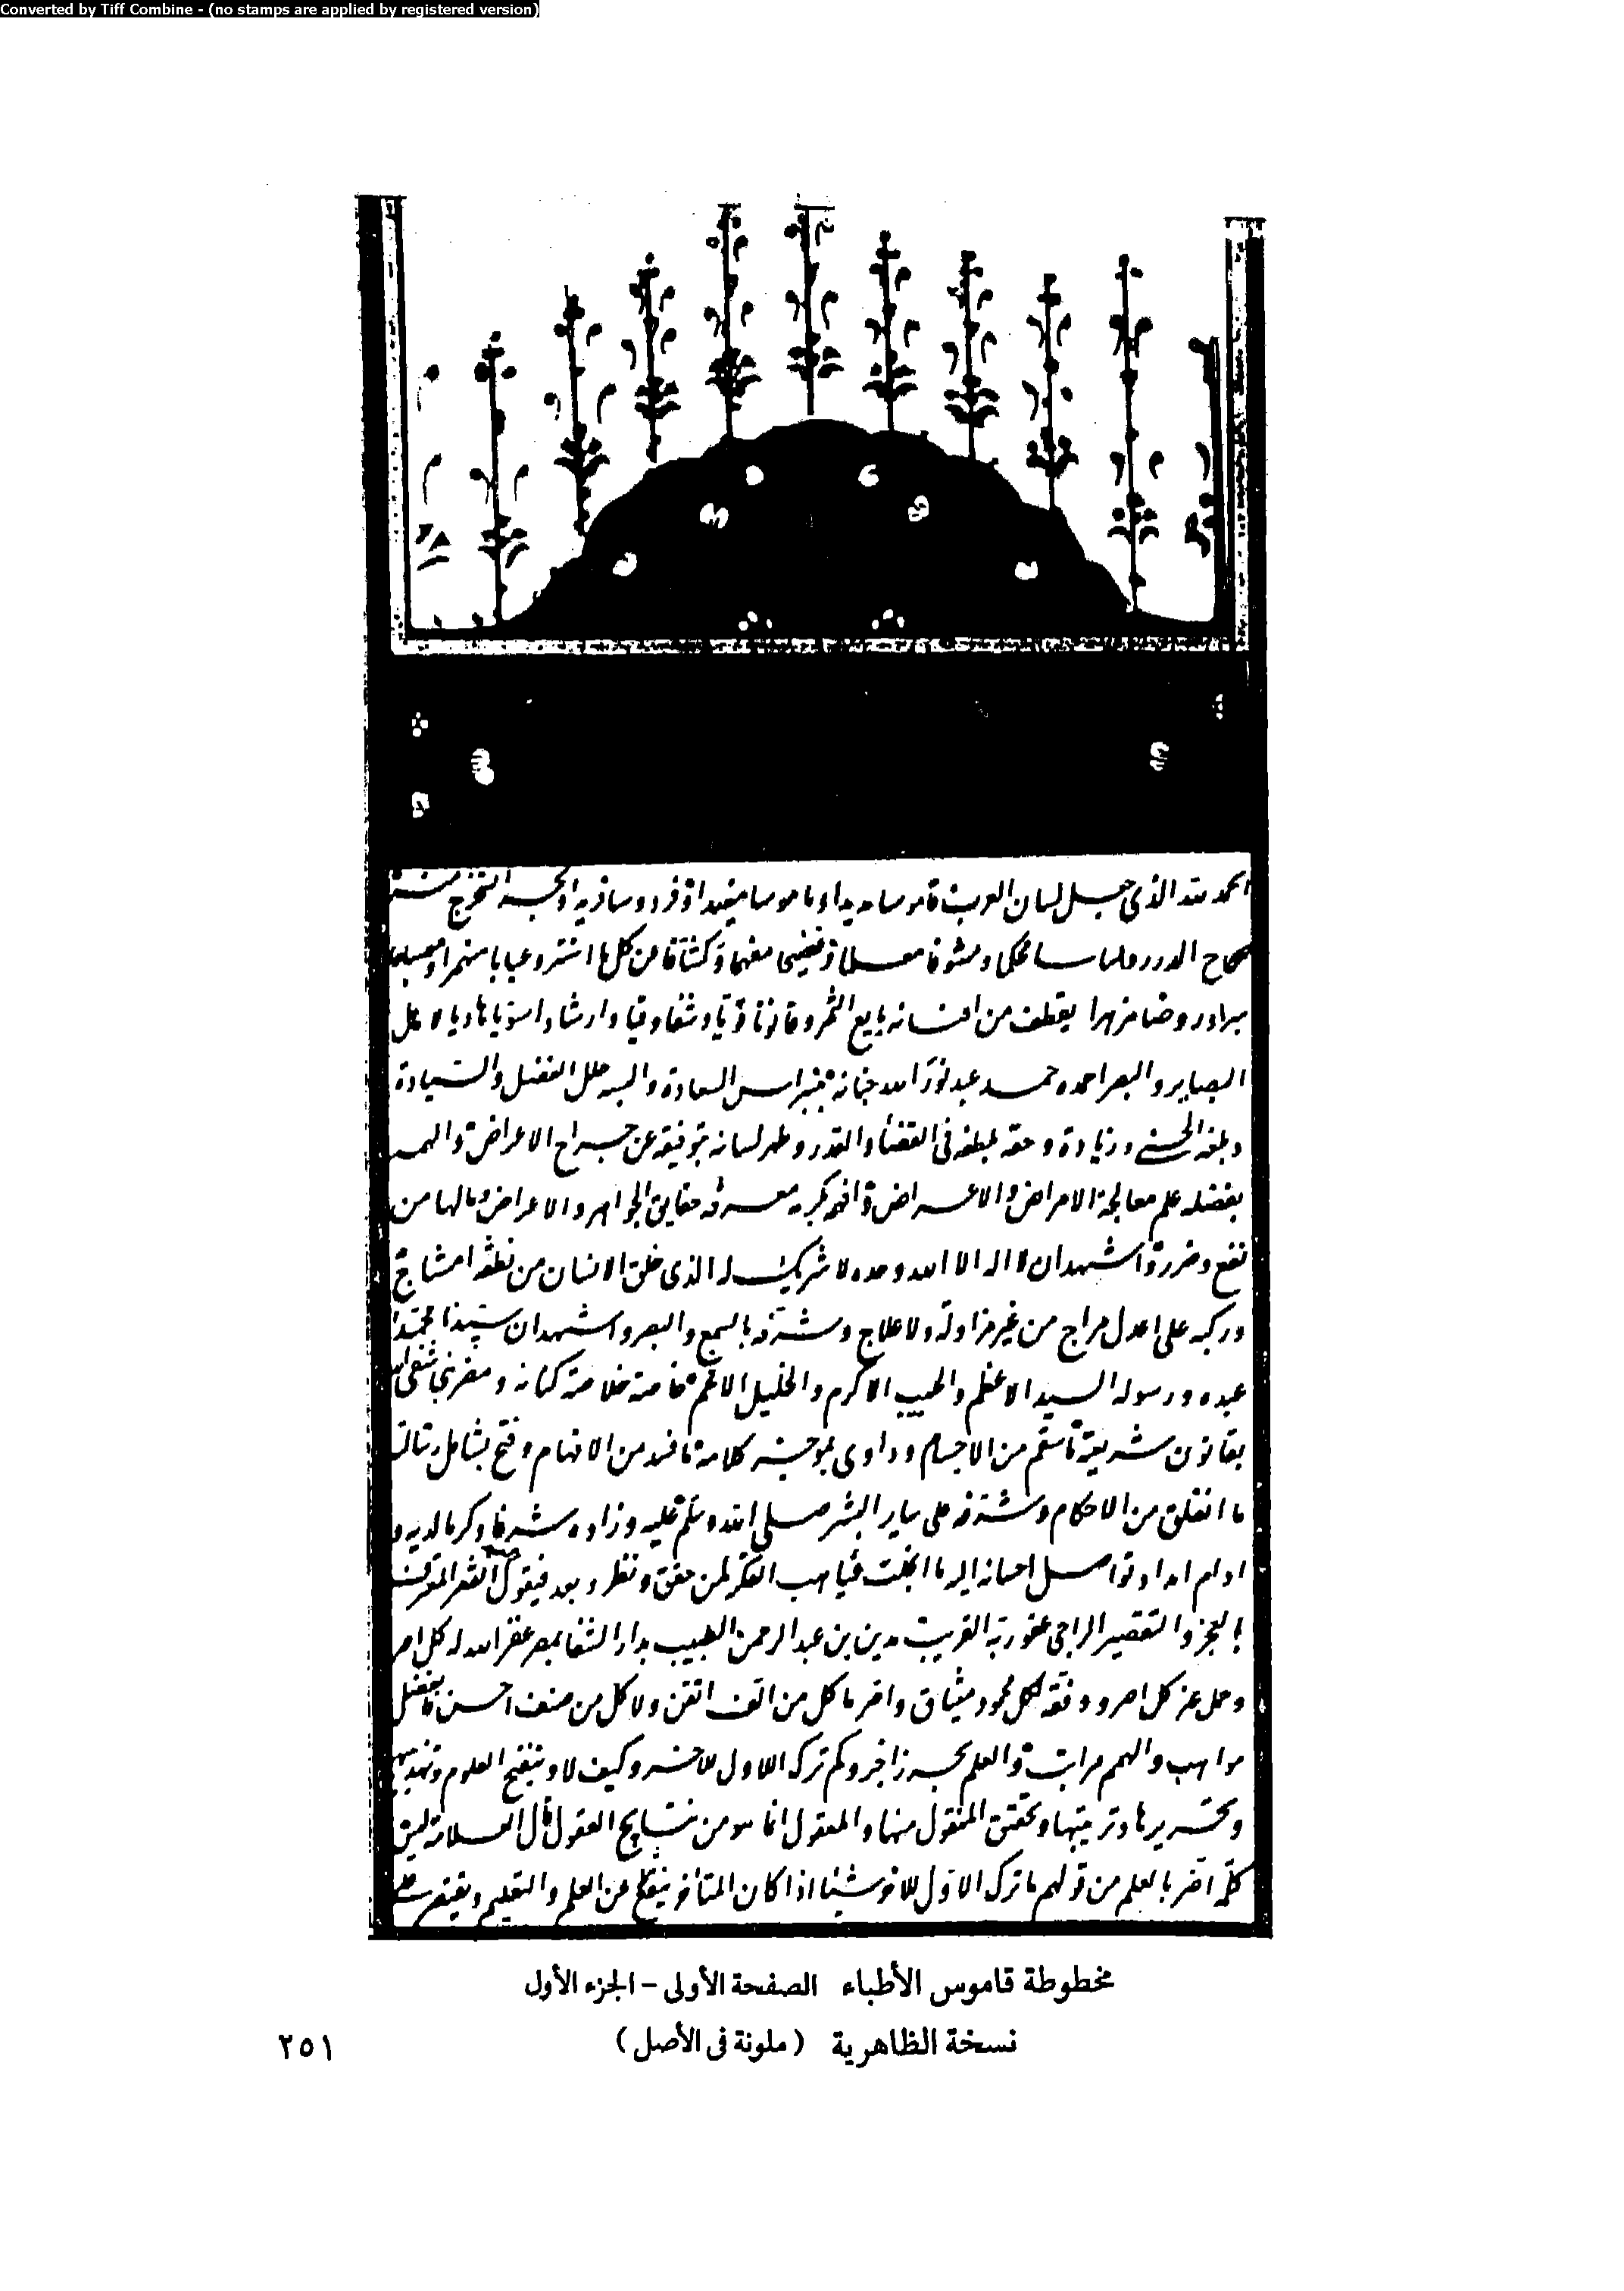 Converted by Tiff Combine - (no stamps are applied by registered version)
الحمد لله الذى جعل لسان العرب قاموسا مديدا وناموسا مفيدا وفردوسا
صحاح الدرر وفصيحا مفهما وكشافا عن كل ما استتر وعبابا منهمرا ومصباحا
يقطف من افنانه يانيع الثمر وقانونا وشفا وارشادا سويا هاديا لاهل
البصاير والبصر احمده حمد عبد نور الله جنانه بنبراس السعادة والبسه حلل الفضل والسيادة
وبلغه الحسنى وزيادة وحفه بلطفه فى القضا والقدر وطهر لسانه بتوفيقه عن جراح الاعراض والهمه
بفضله علم معالجة الامراض والاعراض وافهمه بكرمه معرفة حقايق الجواهر والاعراض وما لها من
نفع وضرر واشهد ان لا اله الا الله وحده لا شريك له الذى خلق الانسان من نطفة امشاج
وركبه على اعدل مزاج من غير مزاولة ولا علاج وشرفه بالسمع والبصر واشهد ان سيدنا محمدا
عبده ورسوله السيد الاعظم والحبيب الاكرم والخليل الافخم خلاصة كنانة ومضر
بقانون شريعته ما سقم من الاجسام وداوى بموجز كلامه ما فسد من الافهام وفتح بشامل رسالته
ما انغلق من الاحكام وشرفه على ساير البشر صلى الله وسلم عليه وزاده شرفا وكرما لديه و
ادام امداد تواصل احسانه اليه ما انجلت غياهب الفكر لمن حقق ونظر وبعد فيقول الفقير المعترف
بالعجز والتقصير الراجى عفو ربه القريب مدين بن عبد الرحمن الطبيب بدار الشفا بمصر غفر الله له كل اصر
وحل عنه كل اصر ووفقه لكل محمود ما كل من الف اتقن ولا كل من صنف احسن فالفضل
مواهب والهمم مراتب والعلم بحر زاخر وكم ترك الاول للاخر وكيف لا وتنقيح العلوم وتهذيبها
وتحريرها وترتيبها وتحقيق المنقول منها والمعقول انما هو من نتايج العقول قال العلامة ليس
كلمة اضر بالعلم من قولهم ما ترك الاول للاخر شيئا اذا كان المتأخر عن العلم والتعليم ويقتصر على
مخطوطة قاموس الأطباء الصفحة الأولى - الجزء الأول
نسخة الظاهرية (ملونة في الأصل)
٢٥١